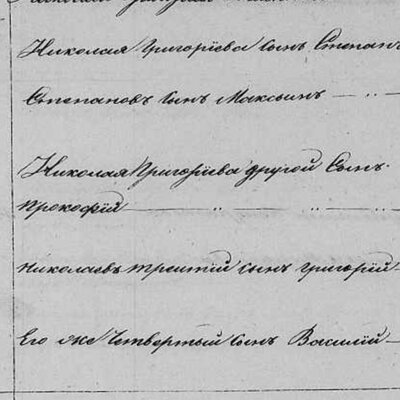 Николая Григорїева сынъ Степанъ
Степановъ сынъ Максимъ
Николая Григорїева другой Сынъ
Прокофїй
Николаевъ третїй сынъ Григорїй
Его же Четвертый сынъ Василїй